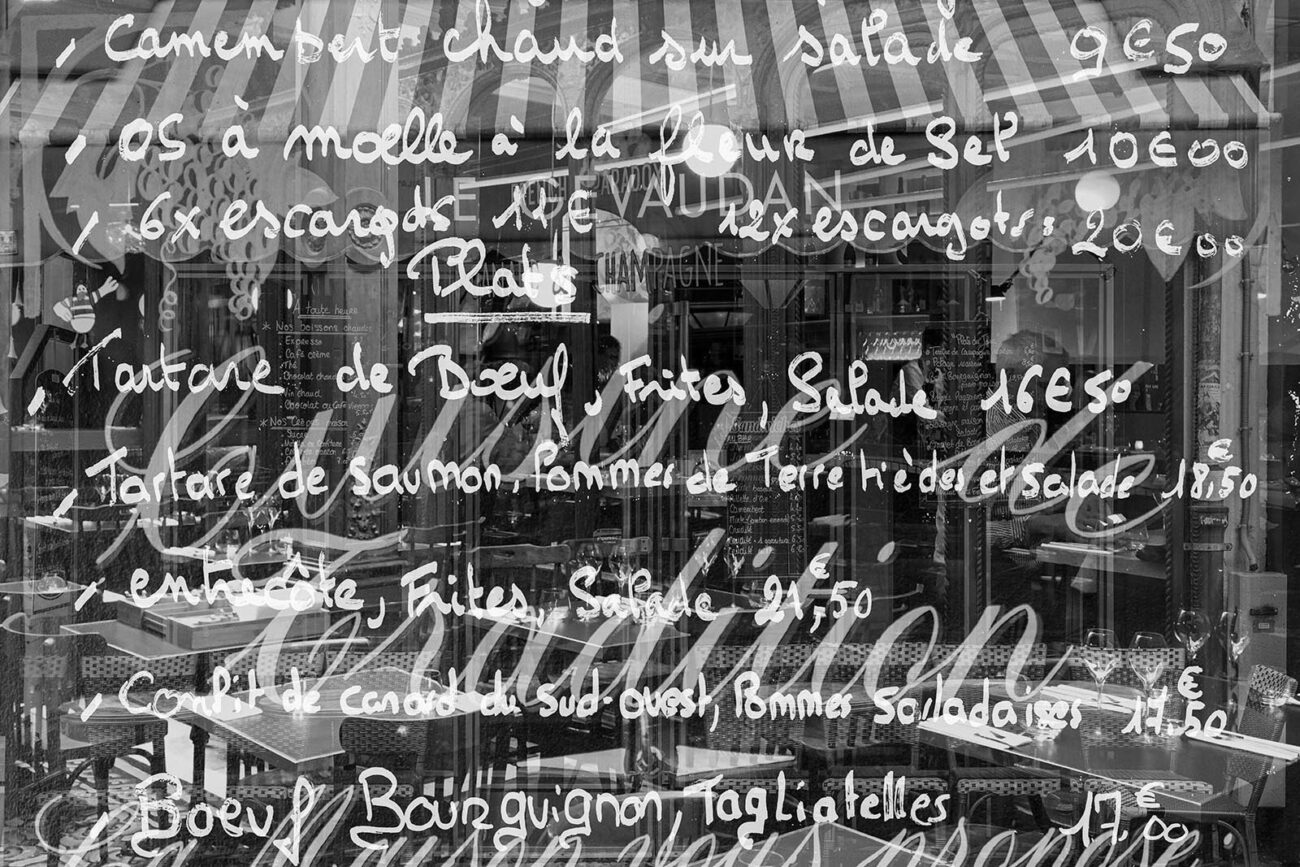 , Camembert chaud sur salade 9€50
, OS à moelle à la fleur de Sel 10€00
LE GÉVAUDAN
, 6x escargots 11€ 12x escargots: 20€00
CHAMPAGNE
Plats
A toute heure
* Nos boissons chaudes
. Expresso
. Café crème
. Thé
. Chocolat chaud
. Vin chaud
. Chocolat ou Café viennois
* Nos Crêpes maison
. Sucre
, Tartare de Bœuf, Frites, Salade 16€50
Cuisine de
, Tartare de Saumon, Pommes de Terre tièdes et Salade 18,50€
Camembert
, entrecôte, Frites, Salade 21,50€
Tradition
, Confit de canard du Sud-ouest, Pommes Salardaises 17,50€
, Boeuf Bourguignon, Tagliatelles 17,00€
La Maison vous propose